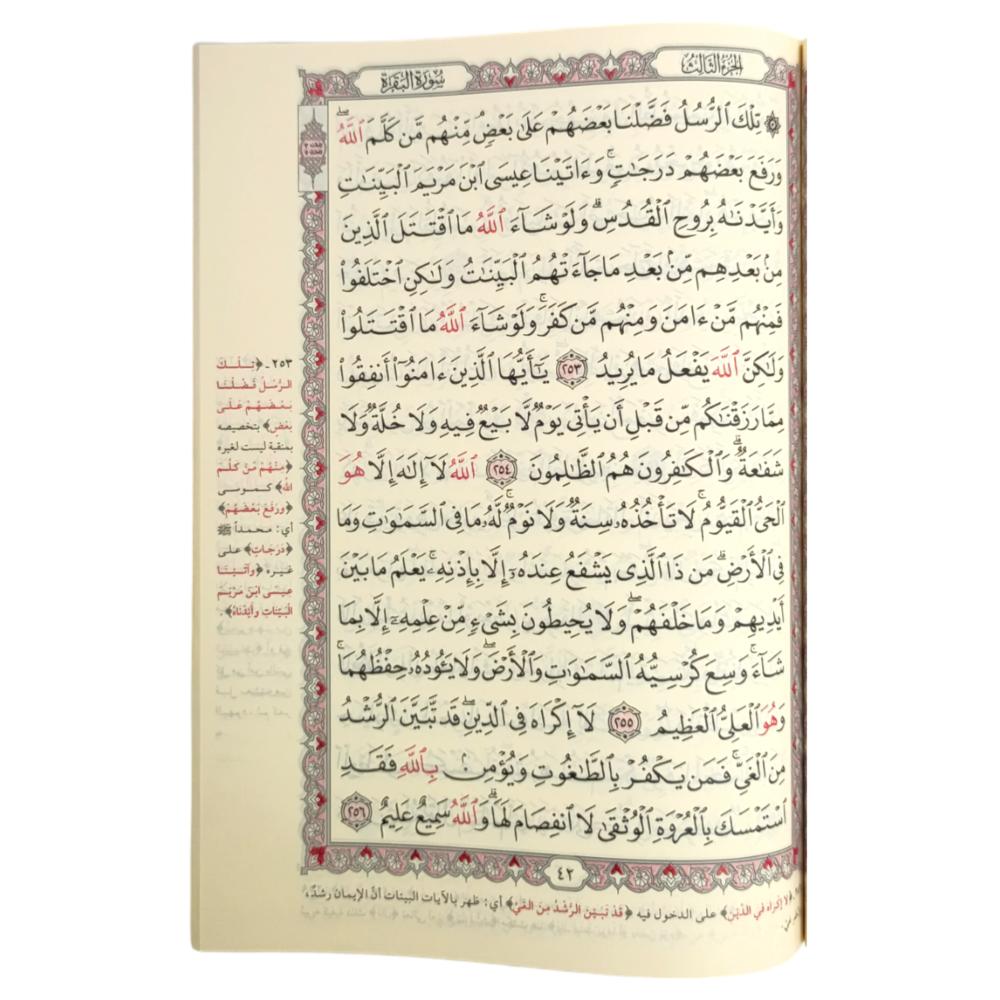 الجزء الثالث
سورة البقرة
۞ تِلْكَ ٱلرُّسُلُ فَضَّلْنَا بَعْضَهُمْ عَلَىٰ بَعْضٍۘ مِّنْهُم مَّن كَلَّمَ ٱللَّهُۖ
وَرَفَعَ بَعْضَهُمْ دَرَجَٰتٍۚ وَءَاتَيْنَا عِيسَى ٱبْنَ مَرْيَمَ ٱلْبَيِّنَٰتِ
وَأَيَّدْنَٰهُ بِرُوحِ ٱلْقُدُسِۗ وَلَوْ شَآءَ ٱللَّهُ مَا ٱقْتَتَلَ ٱلَّذِينَ
مِنۢ بَعْدِهِم مِّنۢ بَعْدِ مَا جَآءَتْهُمُ ٱلْبَيِّنَٰتُ وَلَٰكِنِ ٱخْتَلَفُوا۟
فَمِنْهُم مَّنْ ءَامَنَ وَمِنْهُم مَّن كَفَرَۚ وَلَوْ شَآءَ ٱللَّهُ مَا ٱقْتَتَلُوا۟
وَلَٰكِنَّ ٱللَّهَ يَفْعَلُ مَا يُرِيدُ ٢٥٣ يَٰٓأَيُّهَا ٱلَّذِينَ ءَامَنُوٓا۟ أَنفِقُوا۟
مِمَّا رَزَقْنَٰكُم مِّن قَبْلِ أَن يَأْتِىَ يَوْمٌ لَّا بَيْعٌ فِيهِ وَلَا خُلَّةٌ وَلَا
شَفَٰعَةٌۗ وَٱلْكَٰفِرُونَ هُمُ ٱلظَّٰلِمُونَ ٢٥٤ ٱللَّهُ لَآ إِلَٰهَ إِلَّا هُوَ
ٱلْحَىُّ ٱلْقَيُّومُۚ لَا تَأْخُذُهُۥ سِنَةٌ وَلَا نَوْمٌۚ لَّهُۥ مَا فِى ٱلسَّمَٰوَٰتِ وَمَا
فِى ٱلْأَرْضِۗ مَن ذَا ٱلَّذِى يَشْفَعُ عِندَهُۥٓ إِلَّا بِإِذْنِهِۦۚ يَعْلَمُ مَا بَيْنَ
أَيْدِيهِمْ وَمَا خَلْفَهُمْۖ وَلَا يُحِيطُونَ بِشَىْءٍ مِّنْ عِلْمِهِۦٓ إِلَّا بِمَا
شَآءَۚ وَسِعَ كُرْسِيُّهُ ٱلسَّمَٰوَٰتِ وَٱلْأَرْضَۖ وَلَا يَـُٔودُهُۥ حِفْظُهُمَاۚ
وَهُوَ ٱلْعَلِىُّ ٱلْعَظِيمُ ٢٥٥ لَآ إِكْرَاهَ فِى ٱلدِّينِۖ قَد تَّبَيَّنَ ٱلرُّشْدُ
مِنَ ٱلْغَىِّۚ فَمَن يَكْفُرْ بِٱلطَّٰغُوتِ وَيُؤْمِنۢ بِٱللَّهِ فَقَدِ
ٱسْتَمْسَكَ بِٱلْعُرْوَةِ ٱلْوُثْقَىٰ لَا ٱنفِصَامَ لَهَاۗ وَٱللَّهُ سَمِيعٌ عَلِيمٌ ٢٥٦
٤٢
٢٥٣ ـ ﴿تِلْكَ
الرُّسُلُ فَضَّلْنَا
بَعْضَهُمْ عَلَى
بَعْضٍ﴾ بتخصيصه
بمنقبة ليست لغيره
﴿مِنْهُمْ مَنْ كَلَّمَ
الله﴾ كموسى
﴿وَرَفَعَ بَعْضَهُمْ﴾
أي: محمداً ﷺ
﴿دَرَجَاتٍ﴾ على
غيره ﴿وَآتَيْنَا
عِيسَى ابْنَ مَرْيَمَ
الْبَيِّنَاتِ وَأَيَّدْنَاهُ﴾.
﴿لا إِكْرَاهَ فِي الدِّينِ﴾ على الدخول فيه ﴿قَدْ تَبَيَّنَ الرُّشْدُ مِنَ الغَيِّ﴾ أي: ظهر بالآيات البينات أنَّ الإيمان رشد،